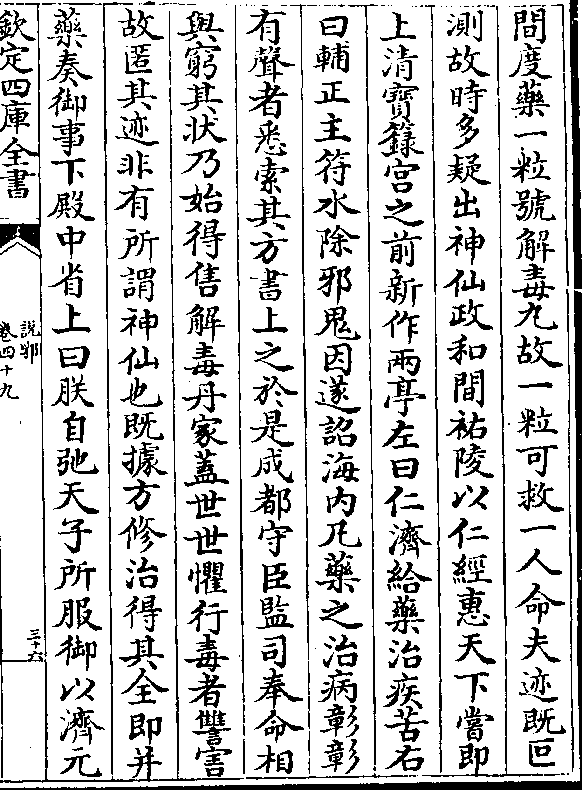 間度藥一粒號解毒丸故一粒可救一人命夫迹既叵
測故時多疑出神仙政和間祐陵以仁經惠天下嘗即
上清寶籙宮之前新作兩亭左曰仁濟給藥治疾苦右
曰輔正主符水除邪鬼因遂詔海内凡藥之治病彰彰
有聲者悉索其方書上之於是成都守臣監司奉命相
與窮其狀乃始得售解毒丹家蓋世世懼行毒者讐害
故匿其迹非有所謂神仙也既據方修治得其全即并
藥奏御事下殿中省上曰朕自弛天子所服御以濟元
欽定四庫全書
說郛
卷四十九
三十六